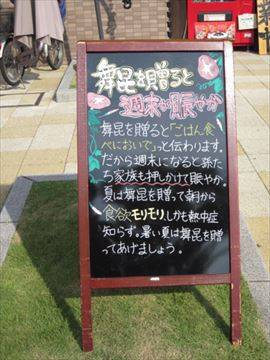 舞昆を贈ると
週末が賑やか
舞昆を贈ると「ごはん食
べにおいで」っと伝わります。
だから週末になると孫た
ち家族も押しかけて賑やか。
夏は舞昆を贈って朝から
食欲モリモリ、しかも熱中症
知らず。暑い夏は舞昆を贈
ってあげましょう。